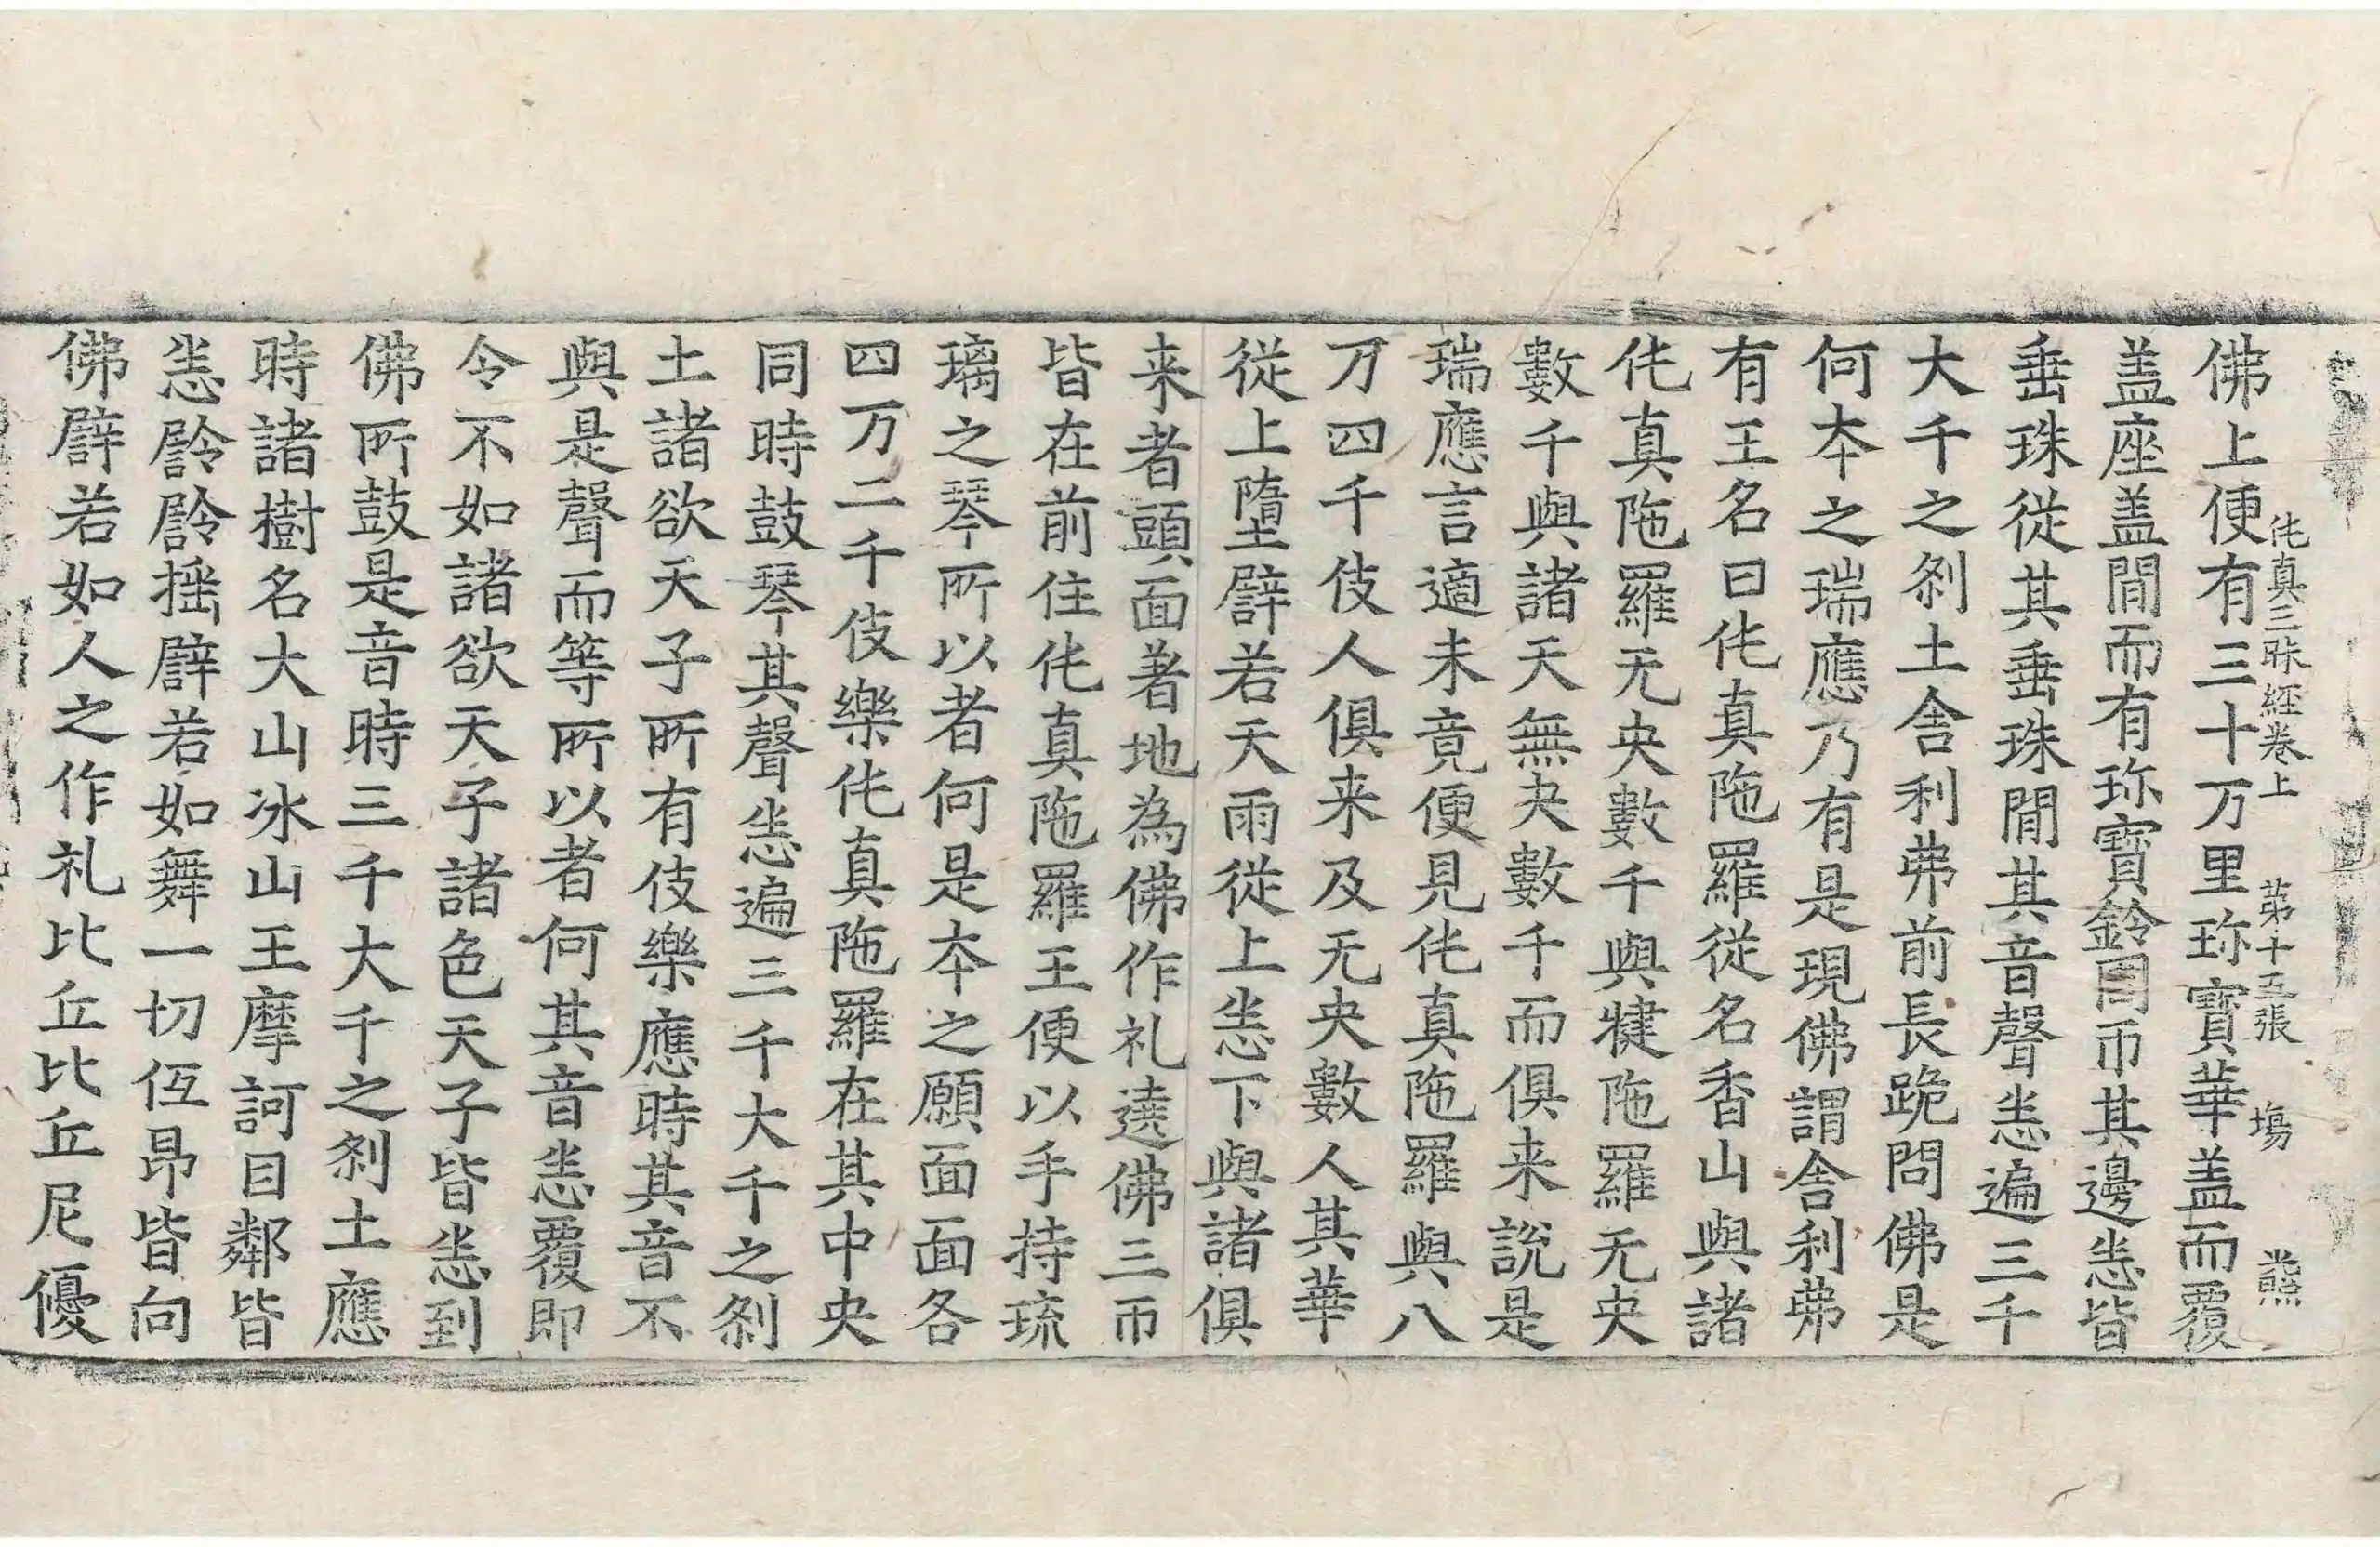 佛上便有三十万里珎寳華盖而覆
仛真三昧経卷上 苐十五張 塲 熊
盖座盖間而有珎寳鈴周帀其邊恙皆
垂珠從其垂珠閒其音聲恙遍三千
大千之刹土舎利弗前長跪問佛是
何夲之瑞應乃有是現佛謂舎利弗
有王名曰仛真陁羅從名香山與諸
仛真陁羅无央數千與犍陁羅无央
數千與諸天無央數千而俱来說是
瑞應言適未竟便見仛真陁羅與八
万四千伎人俱来及无央數人其華
從上墮譬若天雨從上恙下與諸俱
来者頭面著地為佛作礼遶佛三帀
皆在前住仛真陁羅王便以手持琉
璃之琴所以者何是夲之願面面各
四万二千伎樂仛真陁羅在其中央
同時鼓琴其聲恙遍三千大千之刹
土諸欲天子所有伎樂應時其音不
與是聲而等所以者何其音恙覆即
令不如諸欲天子諸色天子皆恙到
佛所鼓是音時三千大千之刹土應
時諸樹名大山冰山王摩訶目鄰皆
恙㕓㕓揺譬若如舞一切仾昂皆向
佛譬若如人之作礼比丘比丘尼優